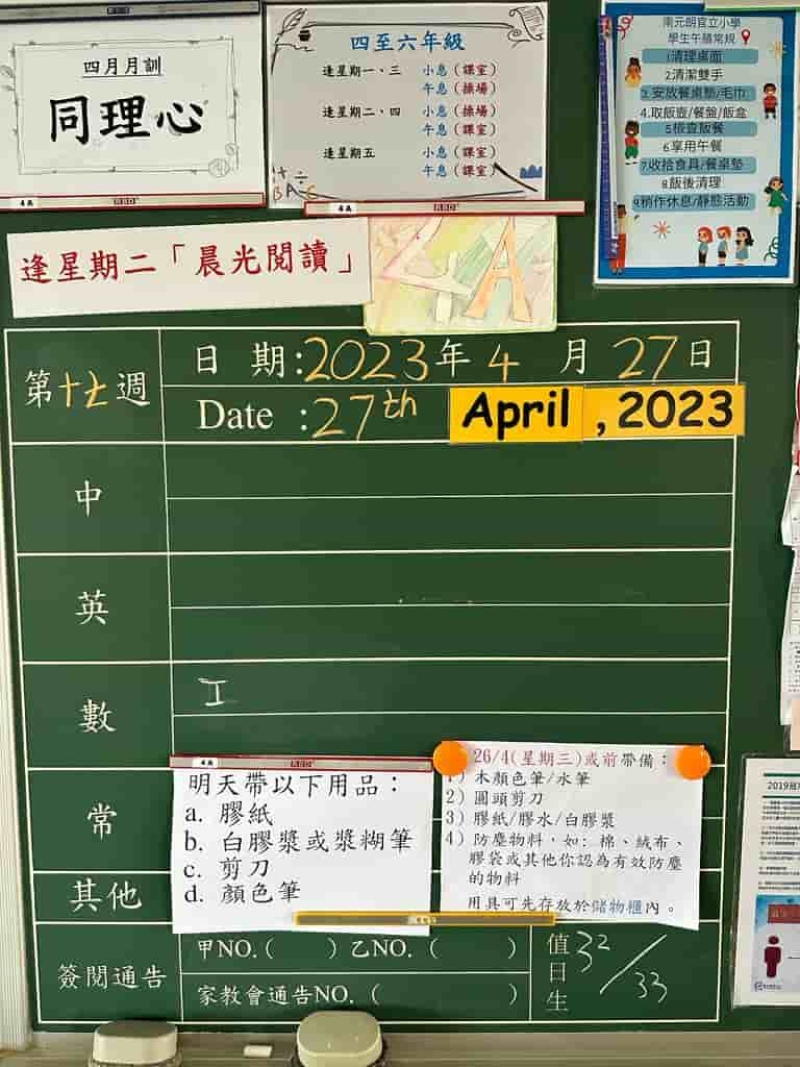 四月月訓
同理心
四至六年級
逢星期一、三 小息（課室）
午息（操場）
逢星期二、四 小息（操場）
午息（課室）
逢星期五 小息（課室）
午息（課室）
南元朗官立小學
學生午膳常規
1清理桌面
2清潔雙手
3.安放餐桌墊/毛巾
4.取飯壺/餐盤/飯盒
5檢查飯餐
6享用午餐
7.收拾食具/餐桌墊
8飯後清理
9稍作休息/靜態活動
逢星期二「晨光閱讀」
4A
第十七週
日 期:2023年 4 月 27日
Date :27th April , 2023
中
英
數
常
其他
明天帶以下用品：
a. 膠紙
b. 白膠漿或漿糊筆
c. 剪刀
d. 顏色筆
26/4(星期三)或前帶備：
1) 木顏色筆/水筆
2) 圓頭剪刀
3) 膠紙/膠水/白膠漿
4) 防塵物料，如: 棉、絨布、
膠袋或其他你認為有效防塵
的物料
用具可先存放於儲物櫃內。
簽閱通告
甲NO.( ) 乙NO. ( )
家教會通告NO. ( )
值日生 32/33